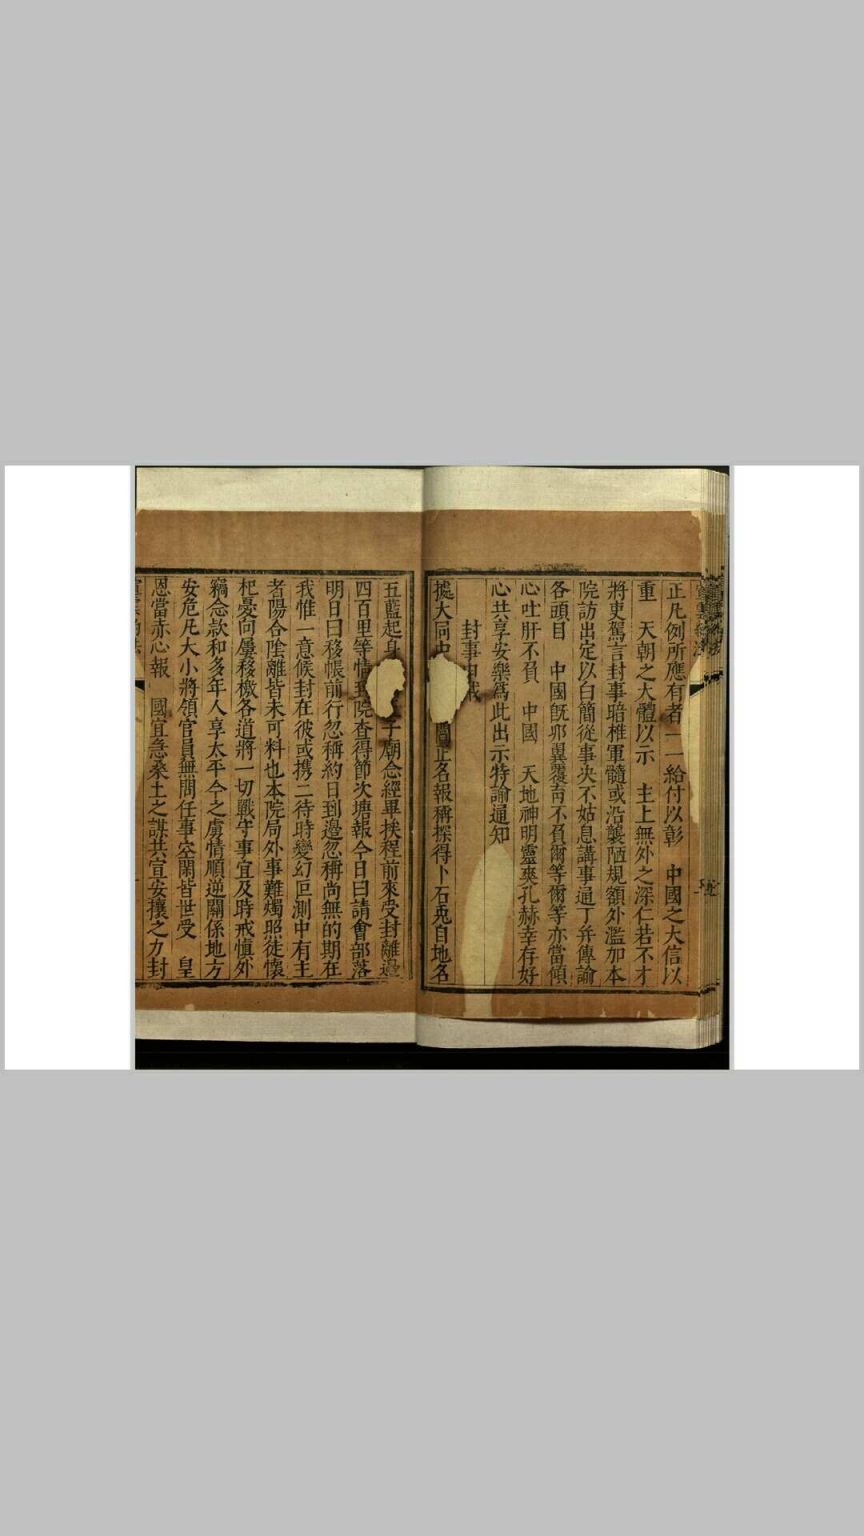 正凡例所應有者一一給付以彰　中國之大信以
重　天朝之大體以示　主上無外之深仁若不才
將吏駕言封事暗椎軍髓或沿襲陋規額外濫加本
院訪出定以白簡從事决不姑息講事通丁并傳諭
各頭目　中國旣郊翼覆育不負爾等爾等亦當傾
心吐肝不負　中國　天地神明靈爽孔赫幸存好
心共享安樂爲此出示特諭通知
封事申
據大同
正名報稱探得卜石兎自地名
五藍起身
子廟念經畢挨程前來受封離邉
四百里等情
院查得節次塘報今日曰請會部落
明日曰移帳前行忽稱約日到邊忽稱尚無的期在
我惟一意候封在彼或携二待時變幻叵測中有主
者陽合陰離皆未可料也本院局外事難燭照徒懷
杞憂向屢移檄各道將一切戰守事宜及時戒慎外
竊念款和多年人享太平今之虜情順逆關係地方
安危凡大小將領官員無間任事空閑皆世受　皇
恩當赤心報　國宜急桑土之謀共宣安攘之力封